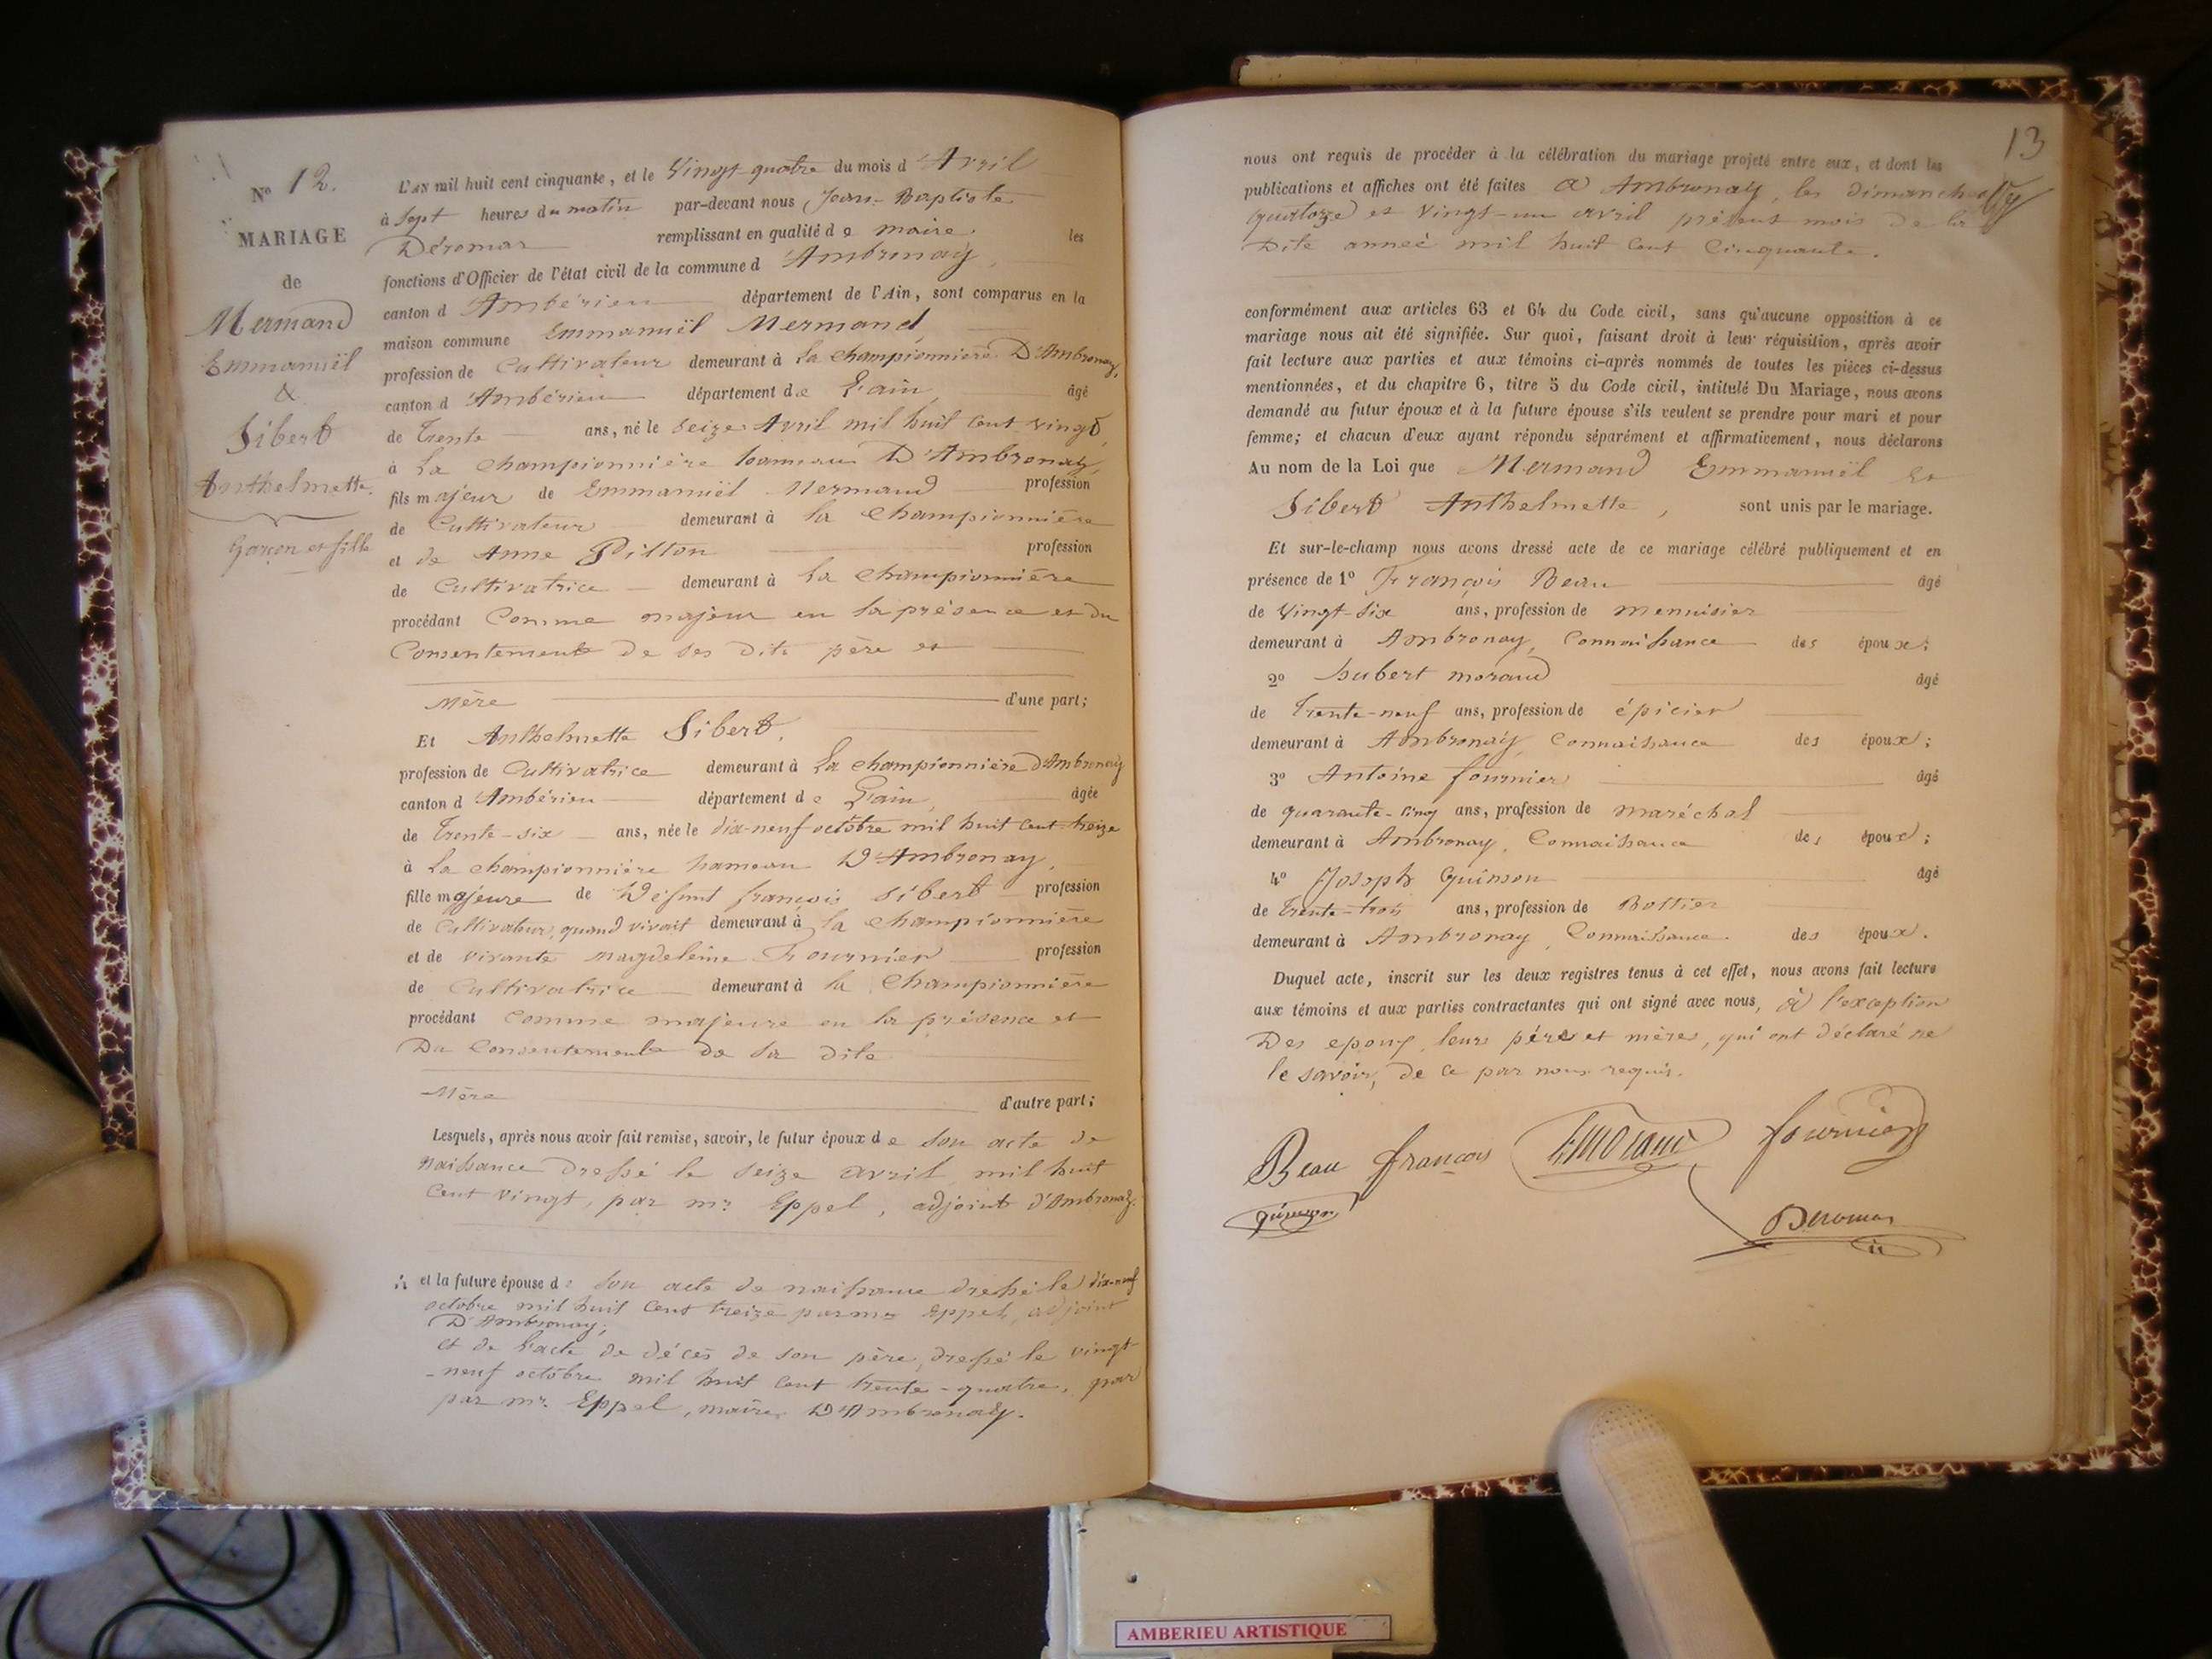 N° 12.
MARIAGE
de
Mermand
Emmanuël
&
Sibert
Anthelmette.
Garçon et fille
L'AN mil huit cent cinquante, et le Vingt quatre du mois d'Avril
à Sept heures du matin par-devant nous Jean-Baptiste
Déromas remplissant en qualité de maire les
fonctions d'Officier de l'état civil de la commune d'Ambronay,
canton d'Ambérieu département de l'Ain, sont comparus en la
maison commune Emmanuël Mermand
profession de Cultivateur demeurant à La Championnière D'Ambronay,
canton d'Ambérieu département de L'ain, âgé
de Trente ans, né le Seize Avril mil huit cent vingt,
à La Championnière hameau D'Ambronay,
fils majeur de Emmanuël Mermand profession
de Cultivateur demeurant à la Championnière
et de Anne Pitton profession
de Cultivatrice demeurant à la Championnière
procédant Comme majeur en la présence et du
Consentement de ses dits père et
Mère d'une part;
Et Anthelmette Sibert,
profession de Cultivatrice demeurant à La Championnière d'Ambronay
canton d'Ambérieu département de L'ain, âgée
de Trente-six ans, née le dix-neuf octobre mil huit cent treize
à La Championnière hameau D'Ambronay,
fille majeure de Défunt françois Sibert profession
de Cultivateur, quand vivait demeurant à la Championnière
et de vivante magdeleine Fournier profession
de Cultivatrice demeurant à la Championnière
procédant Comme majeure en la présence et
Du Consentement de sa dite
Mère d'autre part;
Lesquels, après nous avoir fait remise, savoir, le futur époux de Son acte de
Naissance Dressé le Seize avril mil huit
Cent Vingt, par mr Eppel, adjoint d'Ambronay.
et la future épouse de Son acte de naissance dressé le dix-neuf
octobre mil huit Cent treize par mr Eppel, adjoint
D'Ambronay;
et de l'acte de décès de son père, dressé le vingt-
-neuf octobre mil huit Cent trente-quatre, par
par mr Eppel, maire D'Ambronay.
13
nous ont requis de procéder à la célébration du mariage projeté entre eux, et dont les
publications et affiches ont été faites à Ambronay, les dimanches
quatorze et vingt-un avril présent mois de la
Dite année mil huit Cent Cinquante.
conformément aux articles 63 et 64 du Code civil, sans qu'aucune opposition à ce
mariage nous ait été signifiée. Sur quoi, faisant droit à leur réquisition, après avoir
fait lecture aux parties et aux témoins ci-après nommés de toutes les pièces ci-dessus
mentionnées, et du chapitre 6, titre 5 du Code civil, intitulé Du Mariage, nous avons
demandé au futur époux et à la future épouse s'ils veulent se prendre pour mari et pour
femme; et chacun d'eux ayant répondu séparément et affirmativement, nous déclarons
Au nom de la Loi que Mermand Emmanuël et
Sibert Anthelmette, sont unis par le mariage.
Et sur-le-champ nous avons dressé acte de ce mariage célébré publiquement et en
présence de 1° François Beau âgé
de Vingt-six ans, profession de menuisier
demeurant à Ambronay, Connaissance des époux;
2° hubert morand âgé
de Trente-neuf ans, profession de épicier
demeurant à Ambronay, Connaissance des époux;
3° Antoine fournier âgé
de quarante-cinq ans, profession de maréchal
demeurant à Ambronay, Connaissance des époux;
4° Joseph Guinson âgé
de trente-trois ans, profession de Bottier
demeurant à Ambronay, Connaissance des époux.
Duquel acte, inscrit sur les deux registres tenus à cet effet, nous avons fait lecture
aux témoins et aux parties contractantes qui ont signé avec nous, à l'exception
Des epoux, leurs pères et mères, qui ont déclaré ne
le savoir, de ce par nous requis.
Beau françois hmorand fournier
Deromas
AMBERIEU ARTISTIQUE